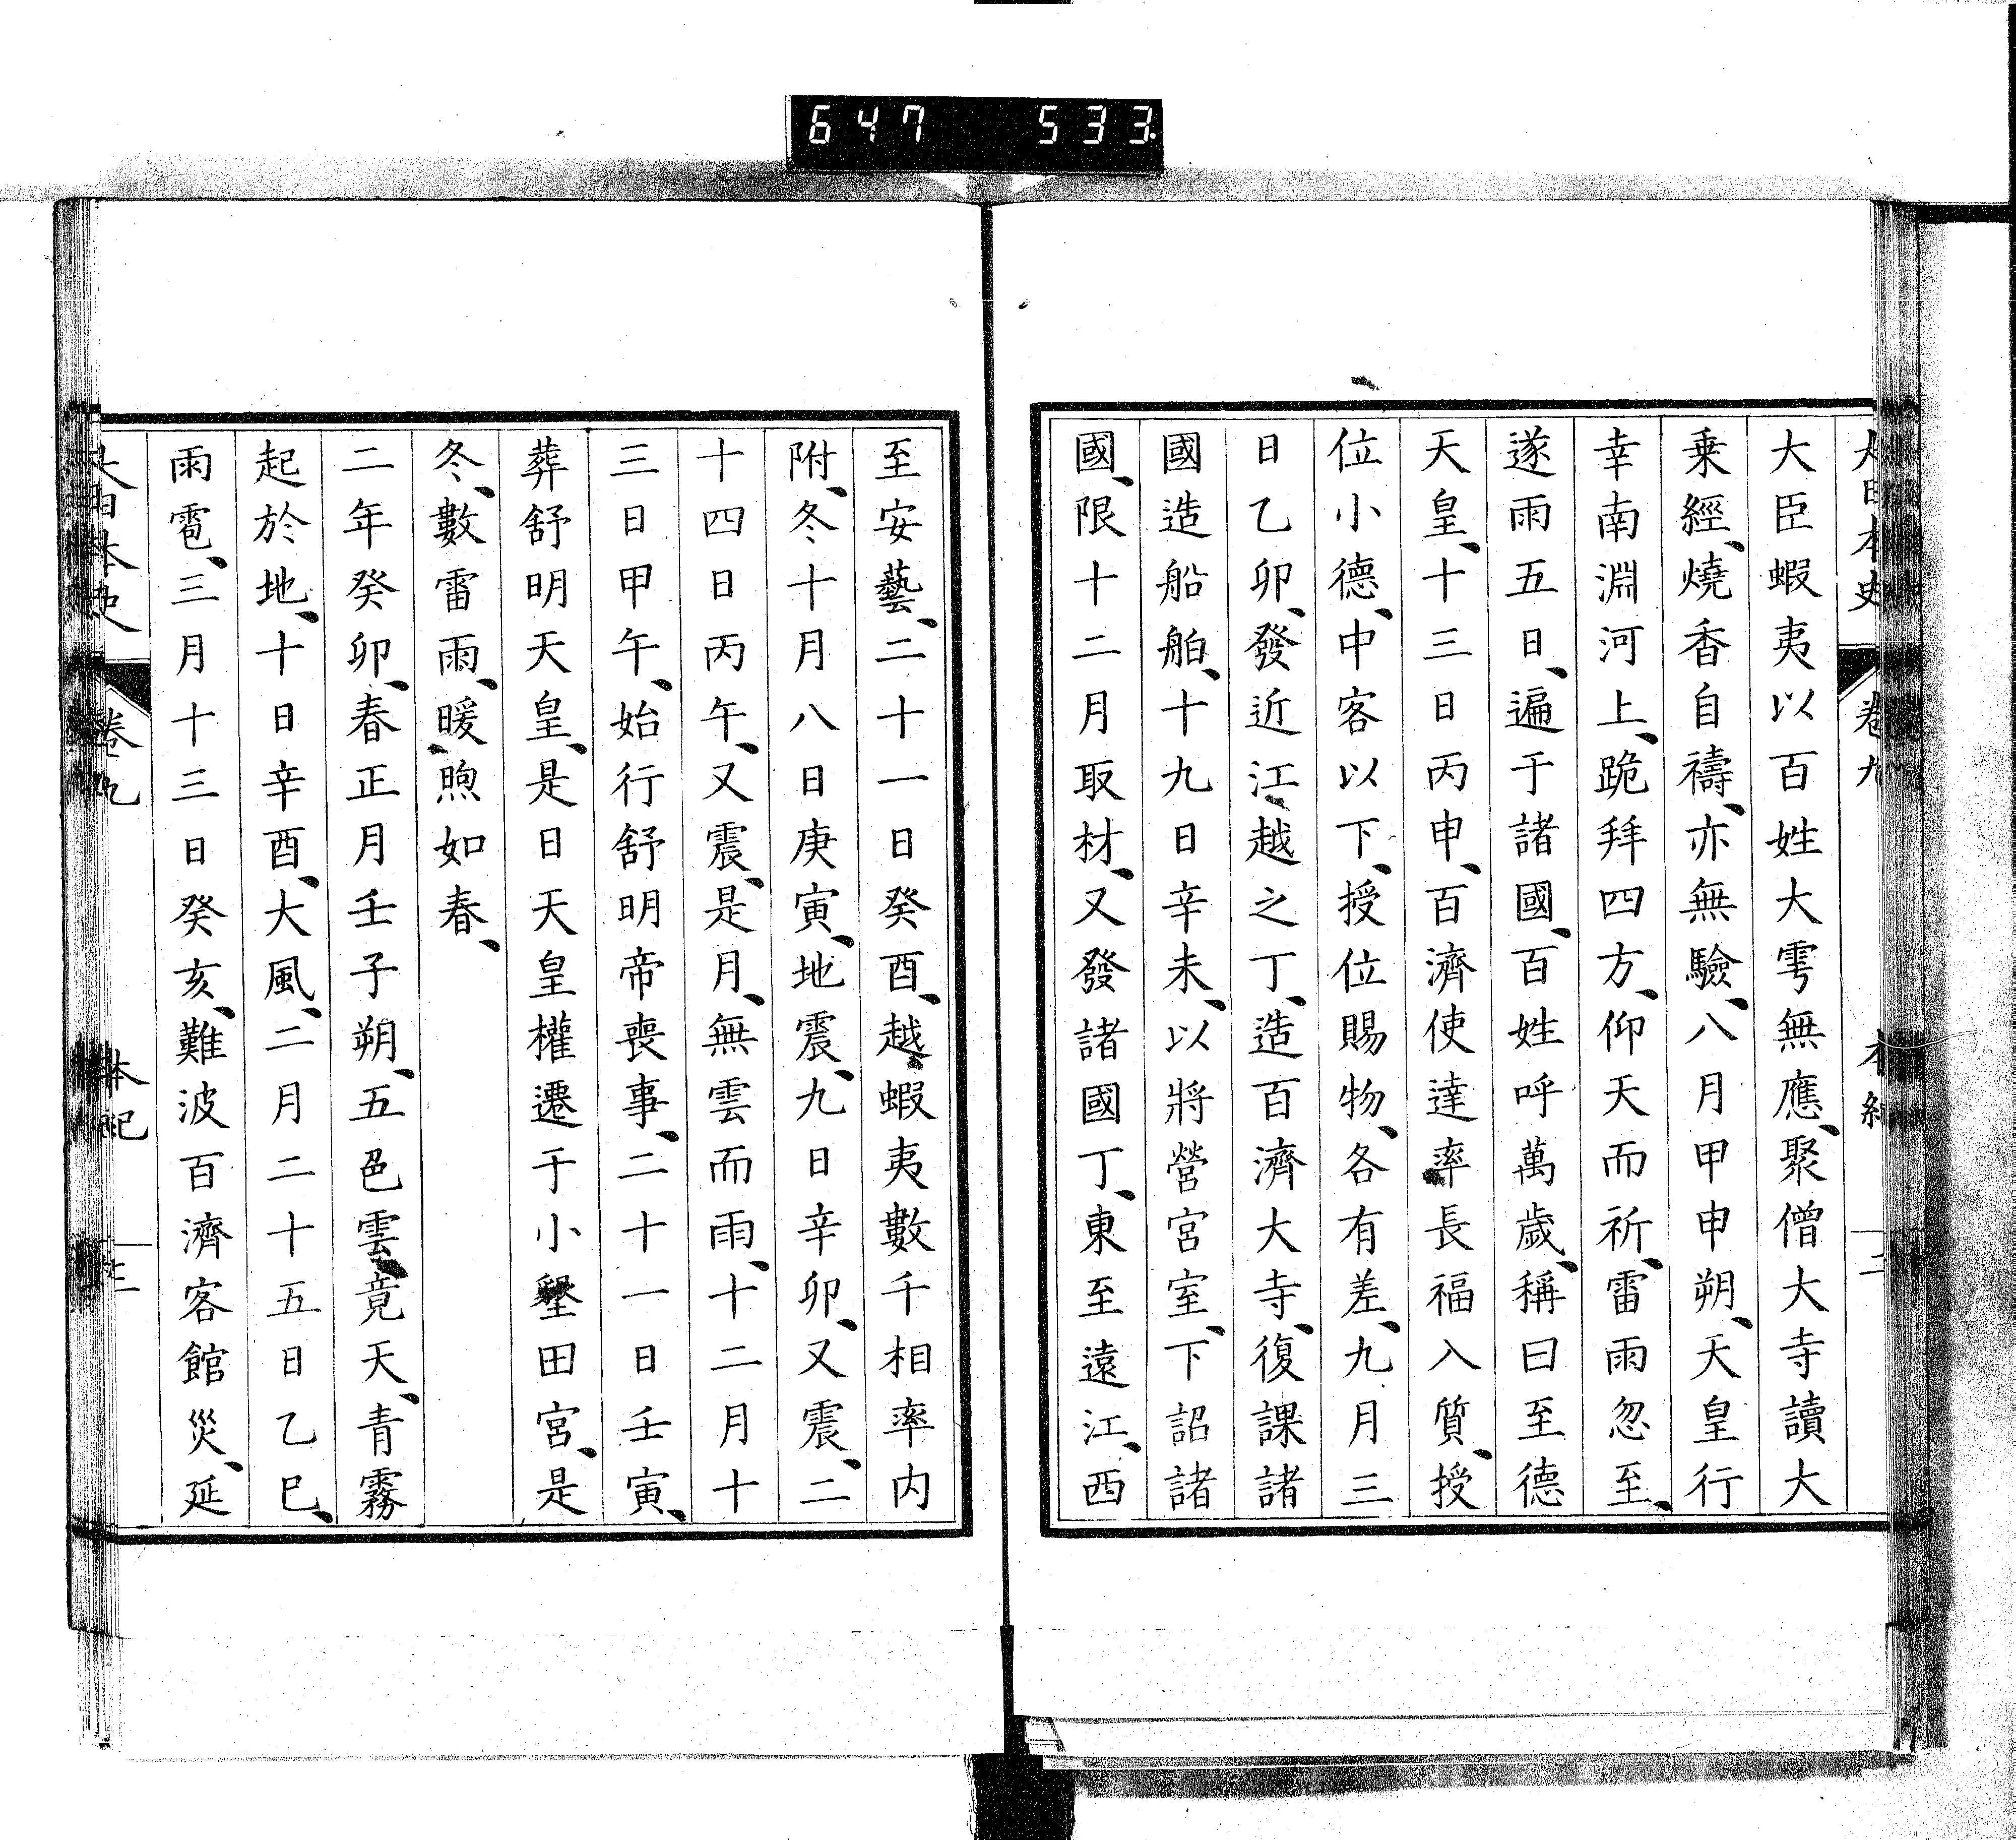 647 533
大日本史 卷九 本紀 二
大臣蝦夷以百姓大雩無應、聚僧大寺讀大
乗經、燒香自禱、亦無驗、八月甲申朔、天皇行
幸南淵河上、跪拜四方、仰天而祈、雷雨忽至、
遂雨五日、遍于諸國、百姓呼萬歲、稱曰至德
天皇、十三日丙申、百濟使達率長福入質、授
位小德、中客以下、授位賜物、各有差、九月三
日乙卯、發近江越之丁、造百濟大寺、復課諸
國造船舶、十九日辛未、以將營宮室、下詔諸
國、限十二月取材、又發諸國丁、東至遠江、西
至安藝、二十一日癸酉、越蝦夷數千相率内
附、冬十月八日庚寅、地震、九日辛卯、又震、二
十四日丙午、又震、是月、無雲而雨、十二月十
三日甲午、始行舒明帝喪事、二十一日壬寅、
葬舒明天皇、是日天皇權遷于小墾田宮、是
冬、數雷雨、暖煦如春、
二年癸卯、春正月壬子朔、五色雲竟天、青霧
起於地、十日辛酉、大風、二月二十五日乙巳、
雨雹、三月十三日癸亥、難波百濟客館災、延
大日本史 卷九 本紀 三